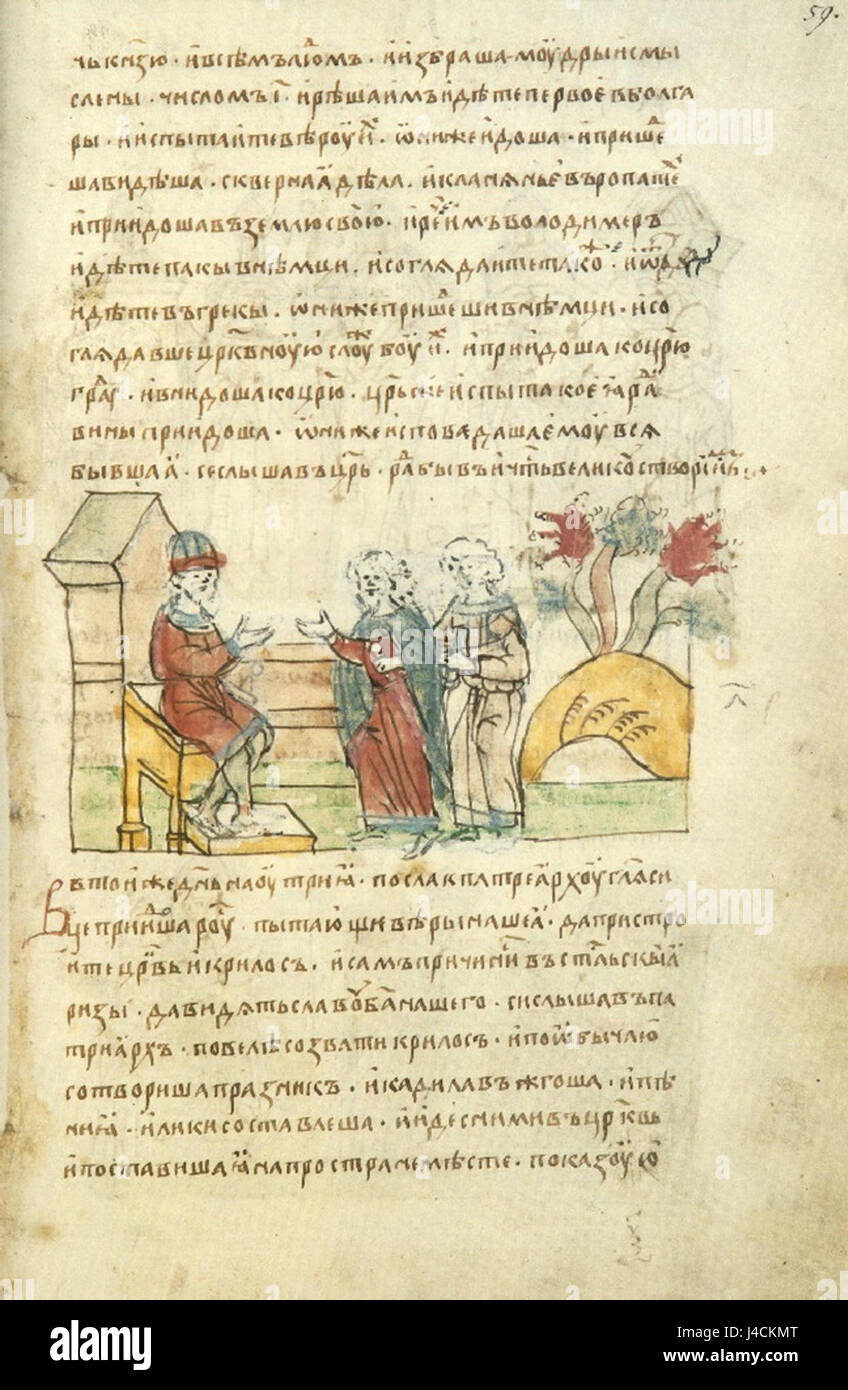 59.
чь кн҃зю · и всѣмъ люⷣмъ · и избраша моужи дрꙑ и смꙑ
слены · числомъ і҃ · и рѣша имъ идѣте первое в болга
рꙑ · и испытаите вѣроу иⷯ · ѡни же идоша · и пришеⷣ
ша видѣша · сквернаꙗ дѣла · и кланѧнье въ ропатѣ
и приидоша въ землю свою · и реⷱ имъ володимеръ
идѣте пакы в нѣмци · и соглядаите такоⷤ · и ѿтꙋдꙋ
идѣте въ грекы · ѡни же пришеⷣши в нѣмци · и со
глядавше црк҃вноую слоуⷤбоу иⷯ · и приидоша ко цр҃ю
граⷣ · и внидоша ко цр҃ю · цр҃ь же испыта коеꙗ раⷣ
вины приидоша · ѡни же исповѣдаша емоу всѧ
бывшаꙗ · се слышавъ цр҃ь · раⷣ бывъ и чⷭть великоу створи имъ
в тои же дн҃ь наоутриꙗ · посла к патреарху гл҃ѧ си
це приидоша роуⷭ · пытающи вѣры нашеꙗ · да пристро
ите црк҃вь и крилосъ · и самъ причинисѧ въ ст҃льскыꙗ
ризы · да видѧть славоу ба҃ нашего · си слышавъ па
триархъ · повелѣ созвати крилосъ · и по ѡбычаю
сотвориша празникъ · и кадила въжгоша · и пѣ
ниꙗ · и лики составлеша · и иде с ними въ црк҃вь
и поставиша ꙗ на простране мѣсте · показоую
alamy
J4CKMT
www.alamy.com